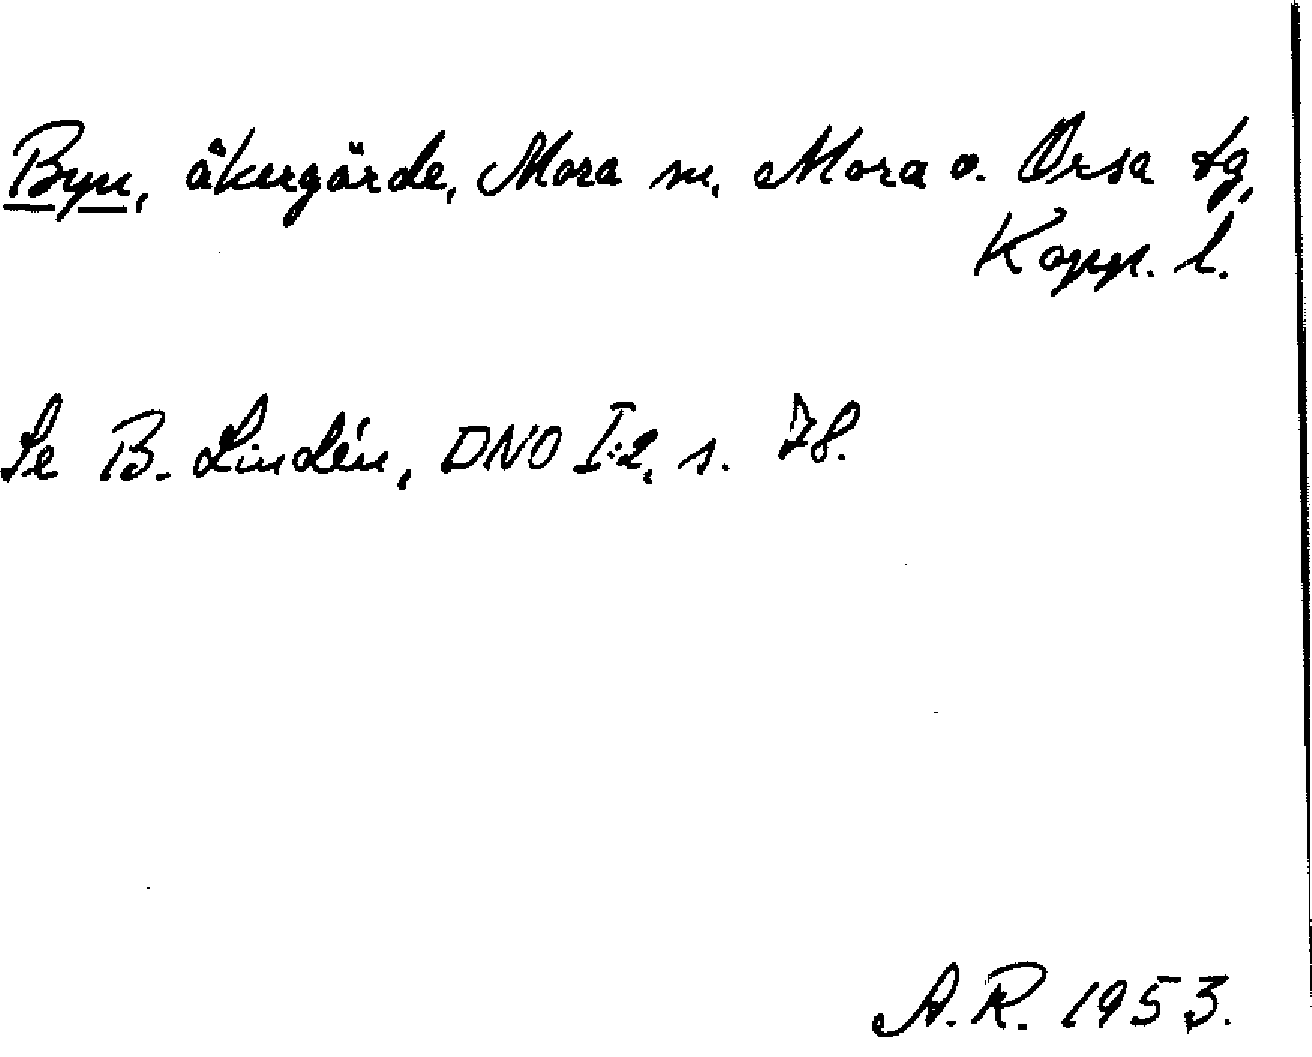 Byn, åkergärde, Mora sn, Mora o. Orsa tg,
Kopp. l.
Se B. Lindén, DNO I:2, s. 78.
A.R. 1953.